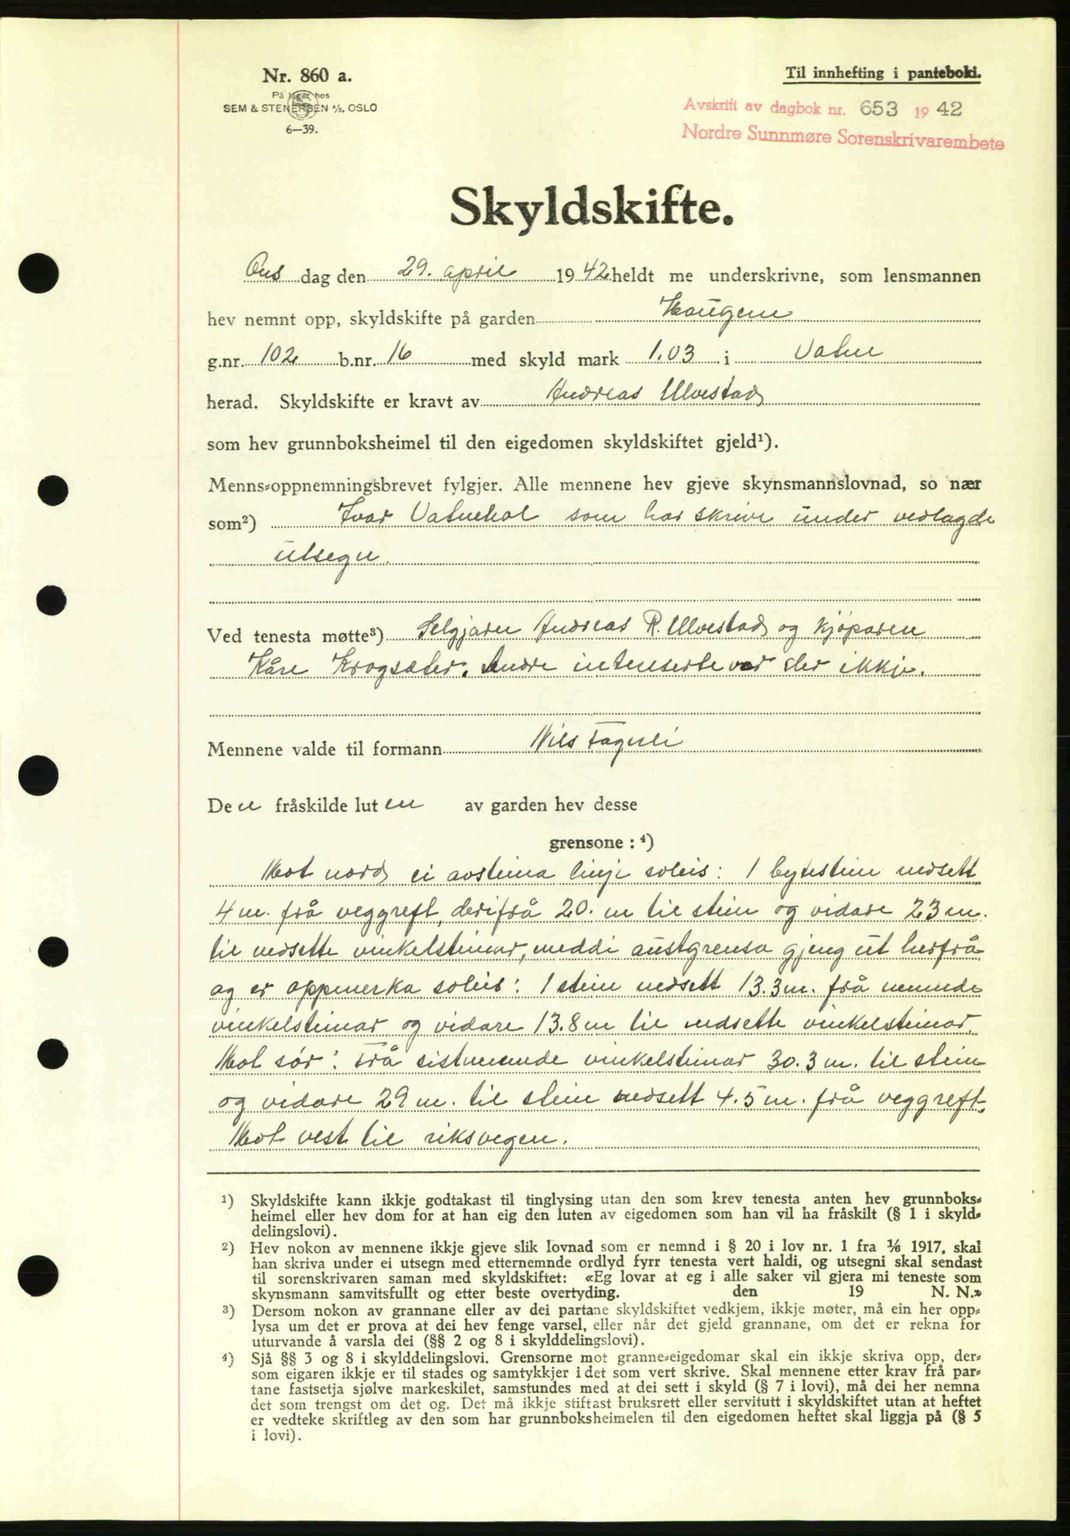 Nr. 860 a.
På lager hos
SEM & STENERSEN A/S. OSLO
6—39.
Til innhefting i panteboki.
Avskrift av dagbok nr. 653 1942
Nordre Sunnmøre Sorenskrivarembete
Skyldskifte.
Ons dag den 29. april 1942 heldt me underskrivne, som lensmannen
hev nemnt opp, skyldskifte på garden Haugen
g.nr. 102 b.nr. 16 med skyld mark 1.03 i Vatne
herad. Skyldskifte er kravt av Andreas Ulvestad
som hev grunnboksheimel til den eigedomen skyldskiftet gjeld¹).
Menns-oppnemningsbrevet fylgjer. Alle mennene hev gjeve skynsmannslovnad, so nær
som²) Ivar Vatnehol som har skrive under vedlagde
utsegn.
Ved tenesta møtte³) Selgjaren Andreas R. Ulvestad og kjøparen
Kåre Krogsæter. Andre interserte var der ikkje.
Mennene valde til formann Nils Fagerli
Den fråskilde luten av garden hev desse
grensone : ⁴)
Mot nord ei avsteina linje soleis: 1 bytestein nedsett
4 m. frå veggreft, derifrå 20. m til stein og vidare 23 m.
til nedsette vinkelsteinar, meddi austgrensa gjeng ut herfrå
og er oppmerka soleis: 1 stein nedsett 13.3 m. frå nemnde
vinkelsteinar og vidare 13.8 m til nedsette vinkelsteinar.
Mot sør: Frå sistnemnde vinkelsteinar 30.3 m. til stein
og vidare 29 m. til stein nedsett 4.5 m. frå veggreft.
Mot vest til riksvegen.
¹) Skyldskifte kann ikkje godtakast til tinglysing utan den som krev tenesta anten hev grunnboks-
heimel eller hev dom for at han eig den luten av eigedomen som han vil ha fråskilt (§ 1 i skyld-
delingslovi).
²) Hev nokon av mennene ikkje gjeve slik lovnad som er nemnd i § 20 i lov nr. 1 fra 1/6 1917, skal
han skriva under ei utsegn med etternemnde ordlyd fyrr tenesta vert haldi, og utsegni skal sendast
til sorenskrivaren saman med skyldskiftet: «Eg lovar at eg i alle saker vil gjera mi teneste som
skynsmann samvitsfullt og etter beste overtyding. den 19 N. N.»
³) Dersom nokon av grannane eller av dei partane skyldskiftet vedkjem, ikkje møter, må ein her opp-
lysa um det er prova at dei hev fenge varsel, eller når det gjeld grannane, om det er rekna for
uturvande å varsla dei (§§ 2 og 8 i skylddelingslovi).
⁴) Sjå §§ 3 og 8 i skylddelingslovi. Grensorne mot granne-eigedomar skal ein ikkje skriva opp, der-
som eigaren ikkje er til stades og samtykkjer i det som vert skrive. Skal mennene etter krav frå par-
tane fastsetja sjølve markeskilet, samstundes med at dei sett i skyld (§ 7 i lovi), må dei her nemna
det som trengst om det og. Det må ikkje stiftast bruksrett eller servitutt i skyldskiftet utan at heftet
er vedteke skriftleg av den som har grunnboksheimelen til den eigedomen heftet skal liggja på (§ 5
i lovi).